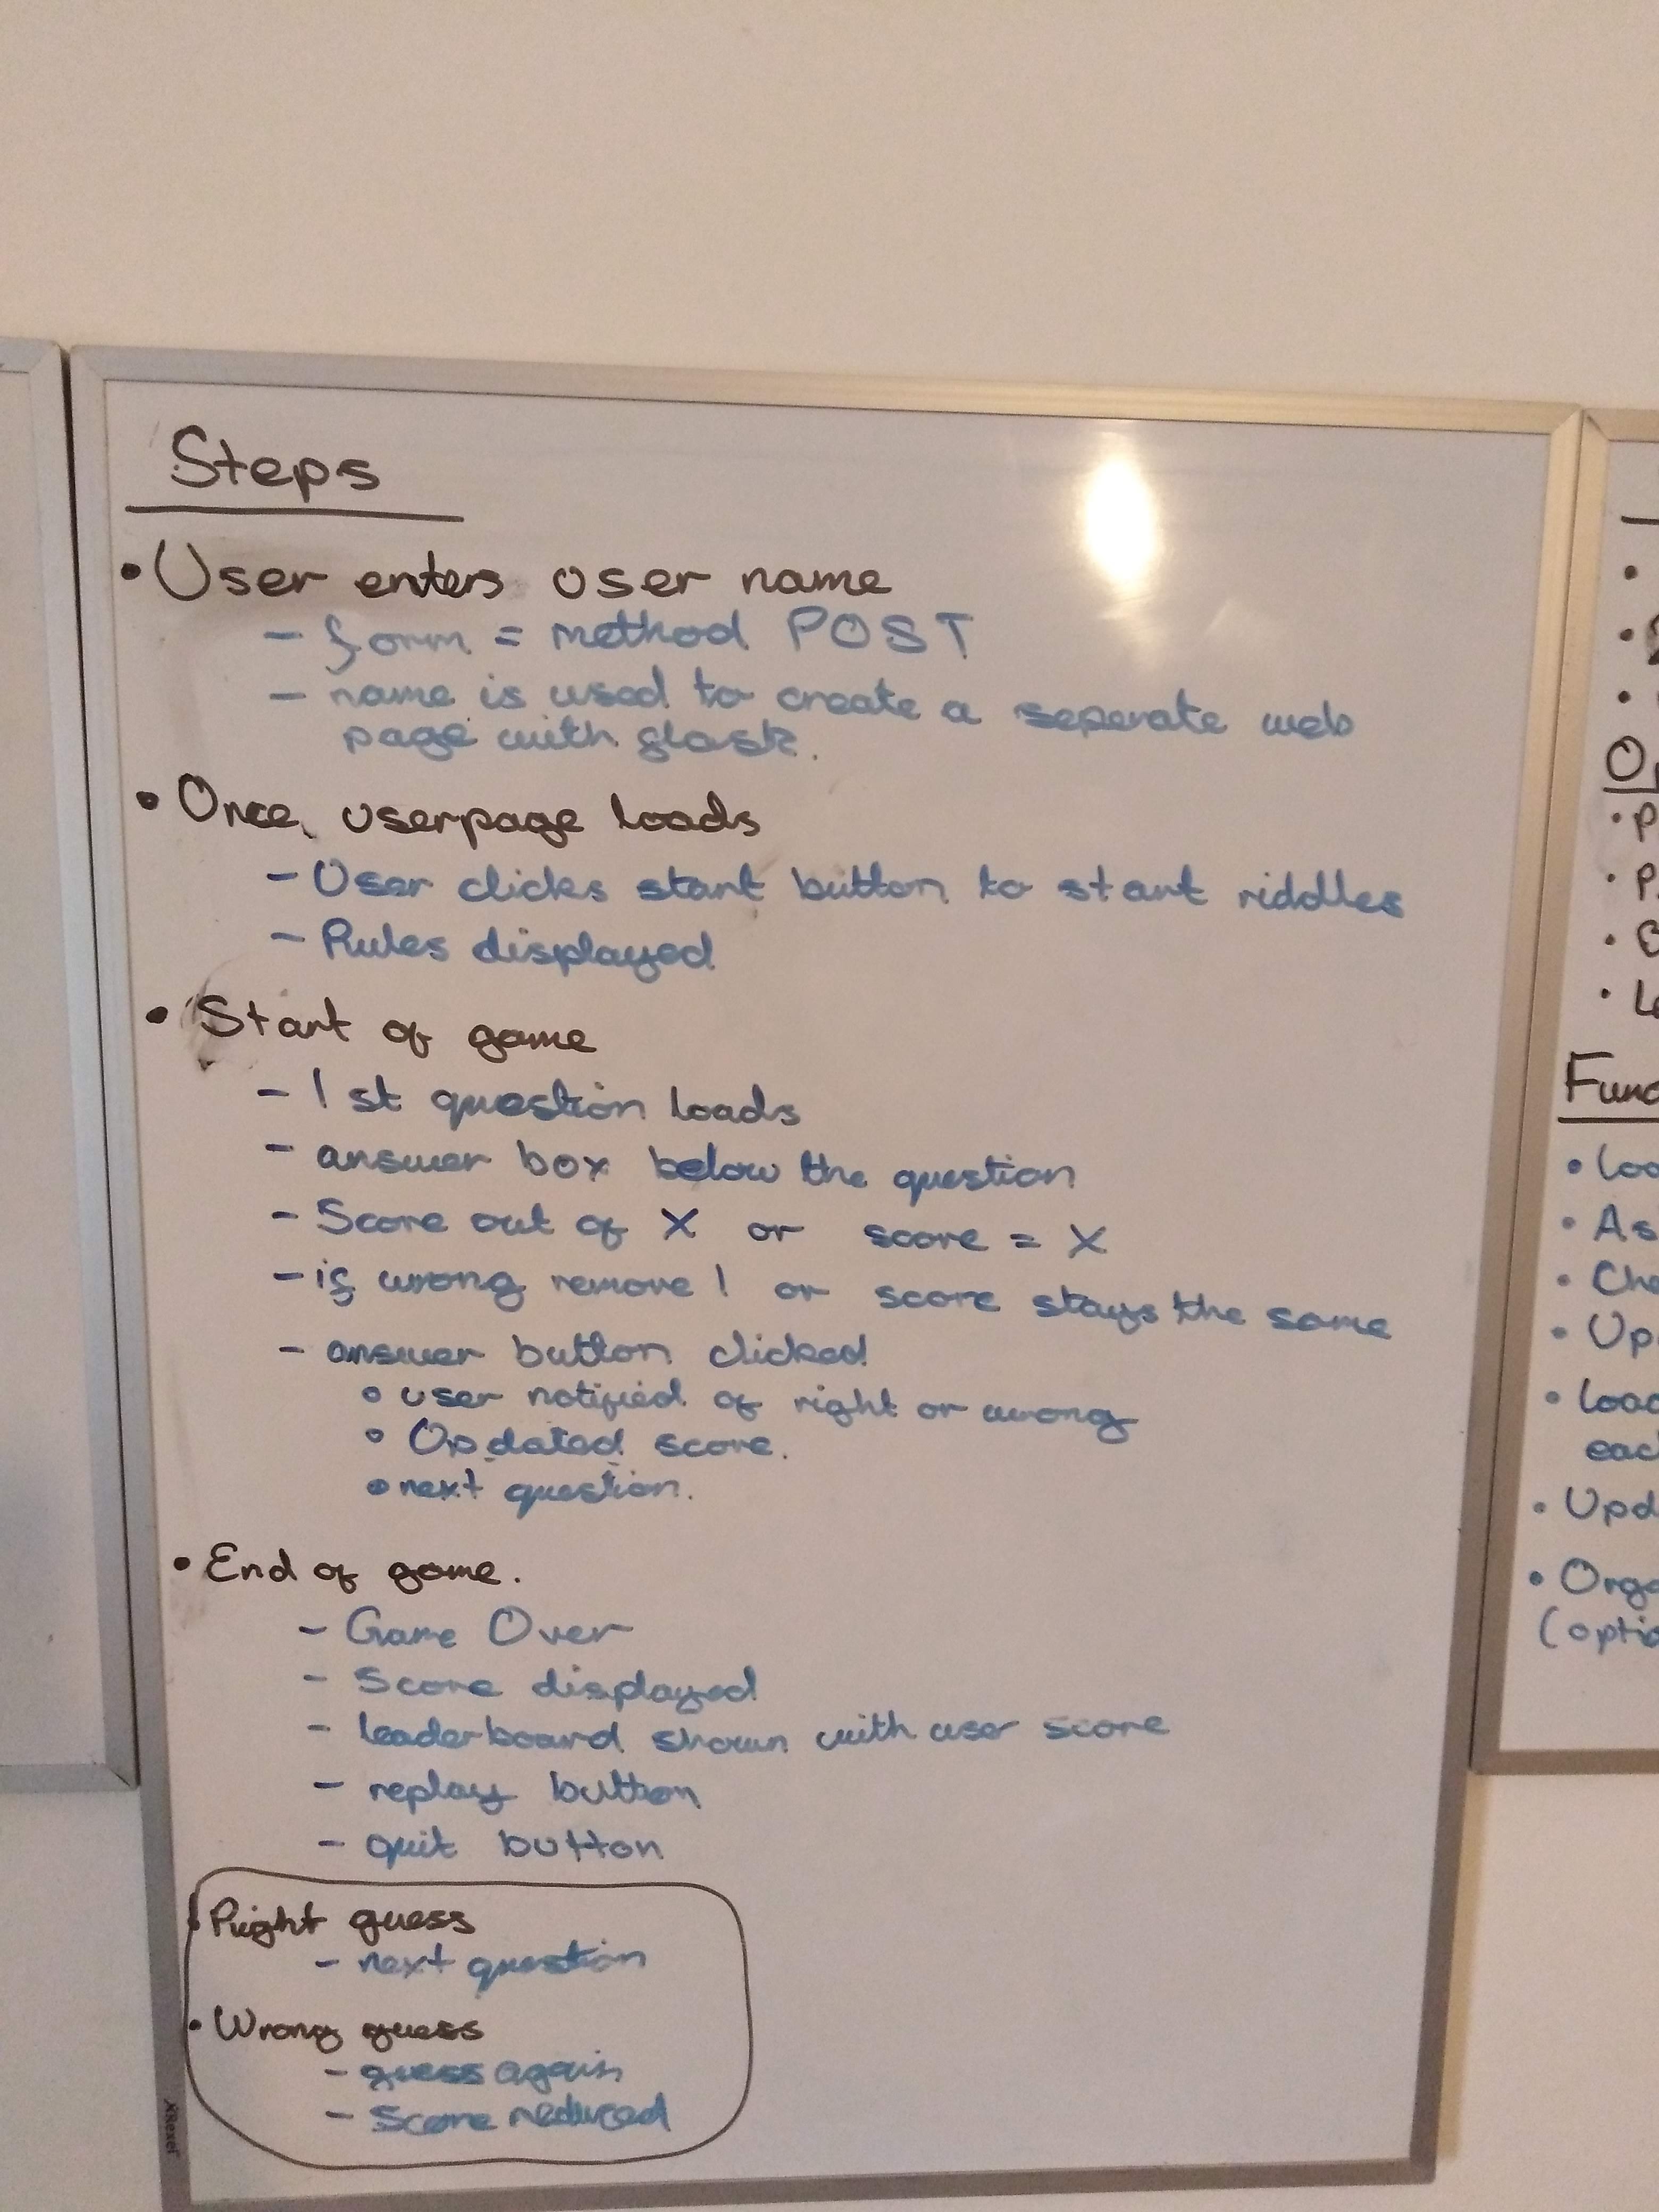 Steps
• User enters user name
- form = method POST
- name is used to create a seperate web
page with flask.
• Once userpage loads
- User clicks start button to start riddles
- Rules displayed
• Start of game
- 1st question loads
- answer box below the question
- Score out of X or score = X
- if wrong remove 1 or score stays the same
- answer button clicked
• user notified of right or wrong
• Updated score.
• next question.
• End of game.
- Game Over
- Score displayed
- leaderboard shown with user score
- replay button
- quit button
• Right guess
- next question
• Wrong guess
- guess again
- Score reduced
Rexel